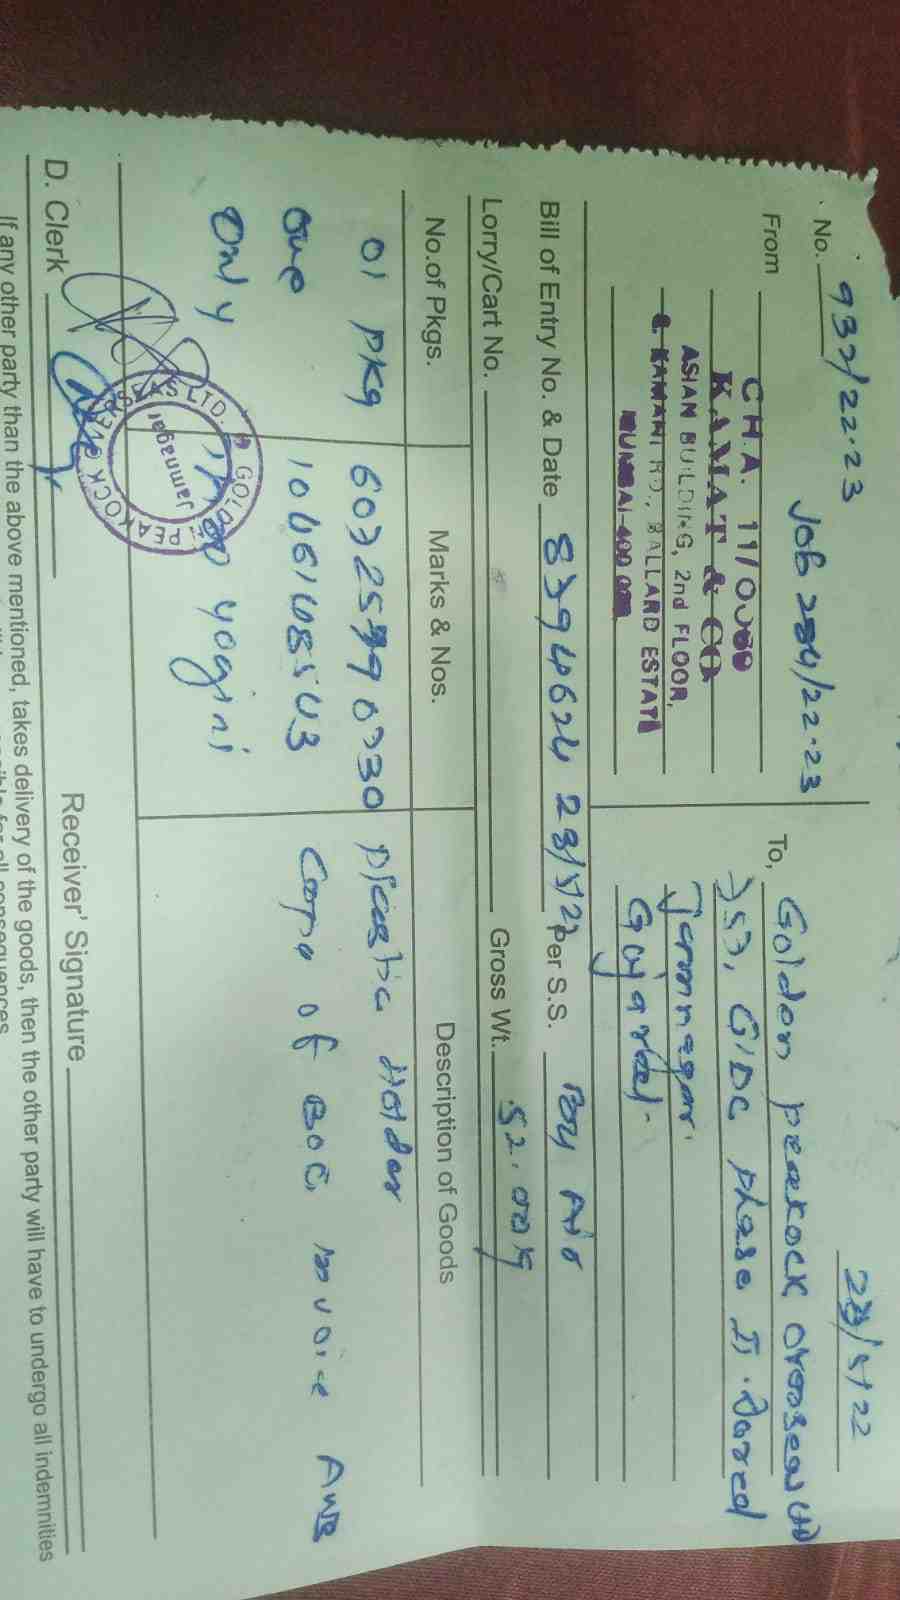 No. 937/22-23
Job 284/22-23
28/5/22
From
C.H.A. 11/
KAMAT & CO
ASIAN BUILDING, 2nd FLOOR,
R. KAMANI RD., BALLARD ESTATE
MUMBAI-400
To, Golden peakock overseas Ltd
GIDC phase II. Dared
Jamnagar.
Gujarat.
Bill of Entry No. & Date 8394624 23/5/22 Per S.S. By Air
Lorry/Cart No. Gross Wt. 52.00
No.of Pkgs. Marks & Nos. Description of Goods
01 pkg Plastic Holder
one 10461485543 Copy of BOE, invoice AWB
only yogini
GOLDEN PEAKOCK OVERSEAS LTD.
Jamnagar
D. Clerk
Receiver' Signature
If any other party than the above mentioned, takes delivery of the goods, then the other party will have to undergo all indemnities